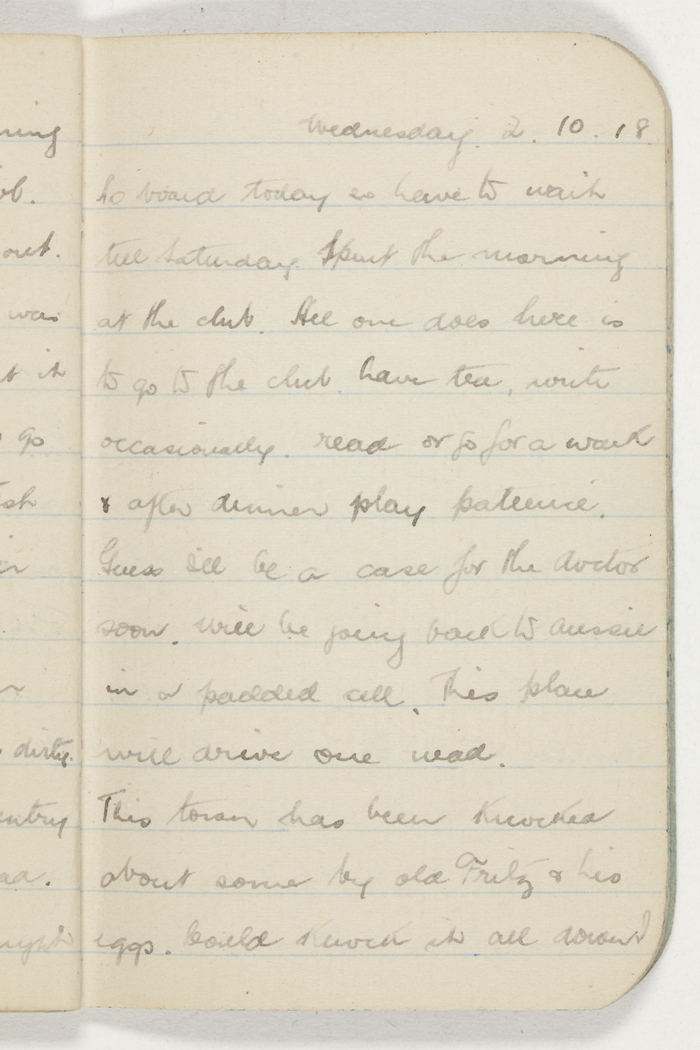 Wednesday. 2. 10. 18.
No board today so have to wait
till Saturday. Spent the morning
at the club. All one does here is
to go to the club. have tea, write
occasionally. read or go for a walk
& after dinner play patience.
Guess Ill be a case for the doctor
soon. Will be going back to Aussie
in a padded cell. This place
will drive one mad.
This town has been knocked
about some by old Fritz & his
eggs. Could knock it all down
ob.
out.
was
t it
go
dirty.